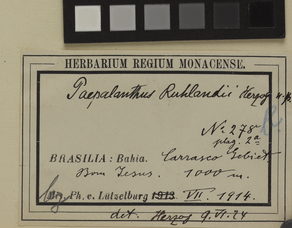 HERBARIUM REGIUM MONACENSE.
Paepalanthus Ruhlandii Herzog n. sp.
No. 278
plag. 2a
BRASILIA: Bahia. Carrasco Gebiet,
Bom Jesus. 1000 m.
Ph. v. Lützelburg 1913 VII. 1914.
det. Herzog 9. VI. 24